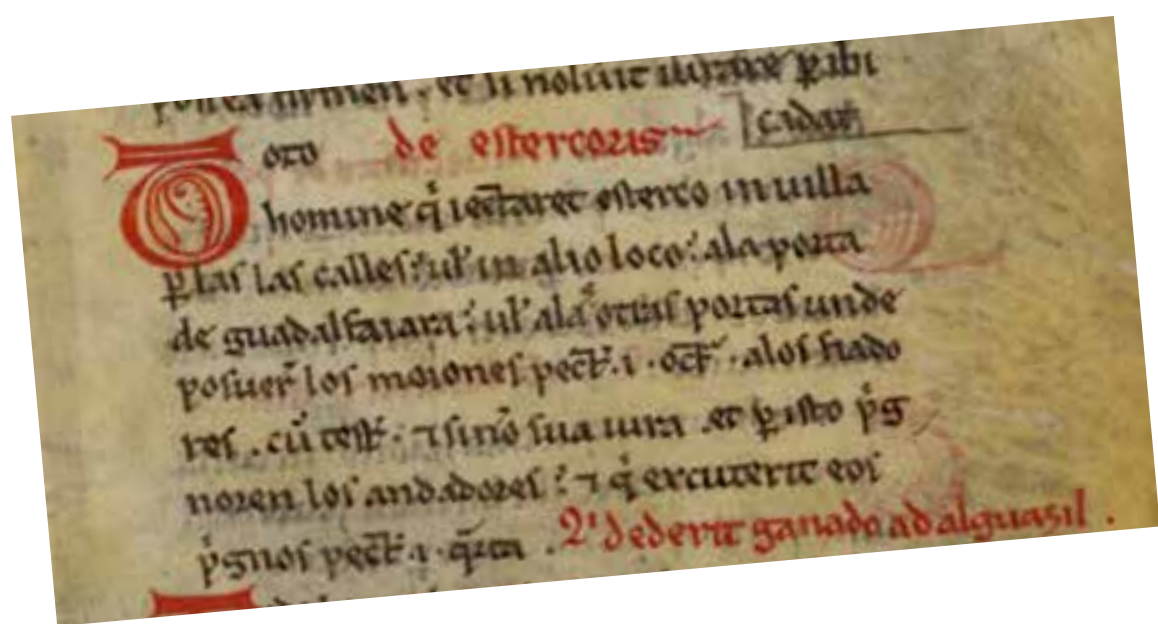 et si noluit iurare p̱ibi
Toto de estercoris cadat
homine q̇ iectaret esterco in uilla
p̱ las las calles: ul̓ in alio loco: ala porta
de guadalfaiara: ul̓ ala otras portas unde
posuer̃ los moiones pect̃. i. oct̃. alos fiado
res. cũ test̃. ⁊ sinõ sua iura. et p̱ isto p̓g
noren los andadores: ⁊ q̇ excuterit eos
p̓gnos pect̃. i. q̃rta. Q̓ dederit ganado ad alguazil.